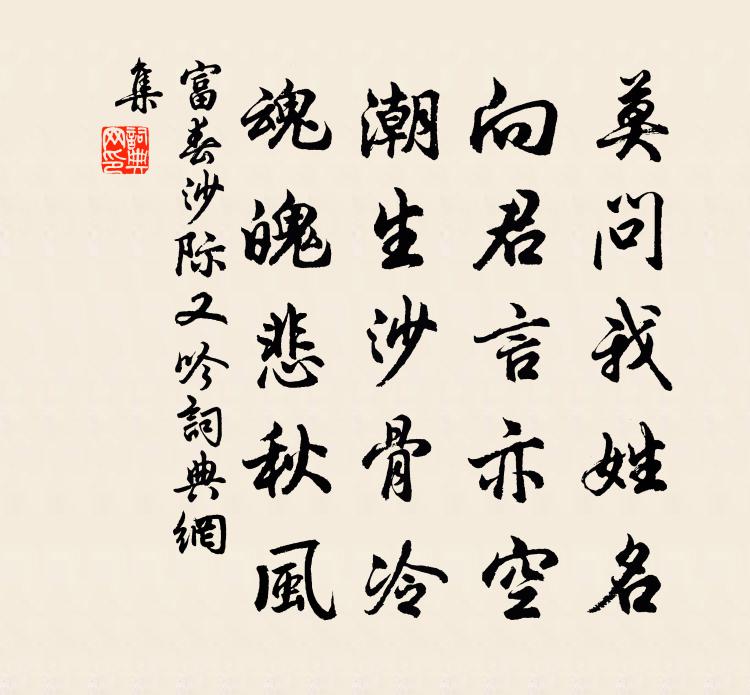 莫問我姓名
向君言亦空
潮生沙骨冷
魂魄悲秋風
富春沙际又吟詞典網
集
詞典網印